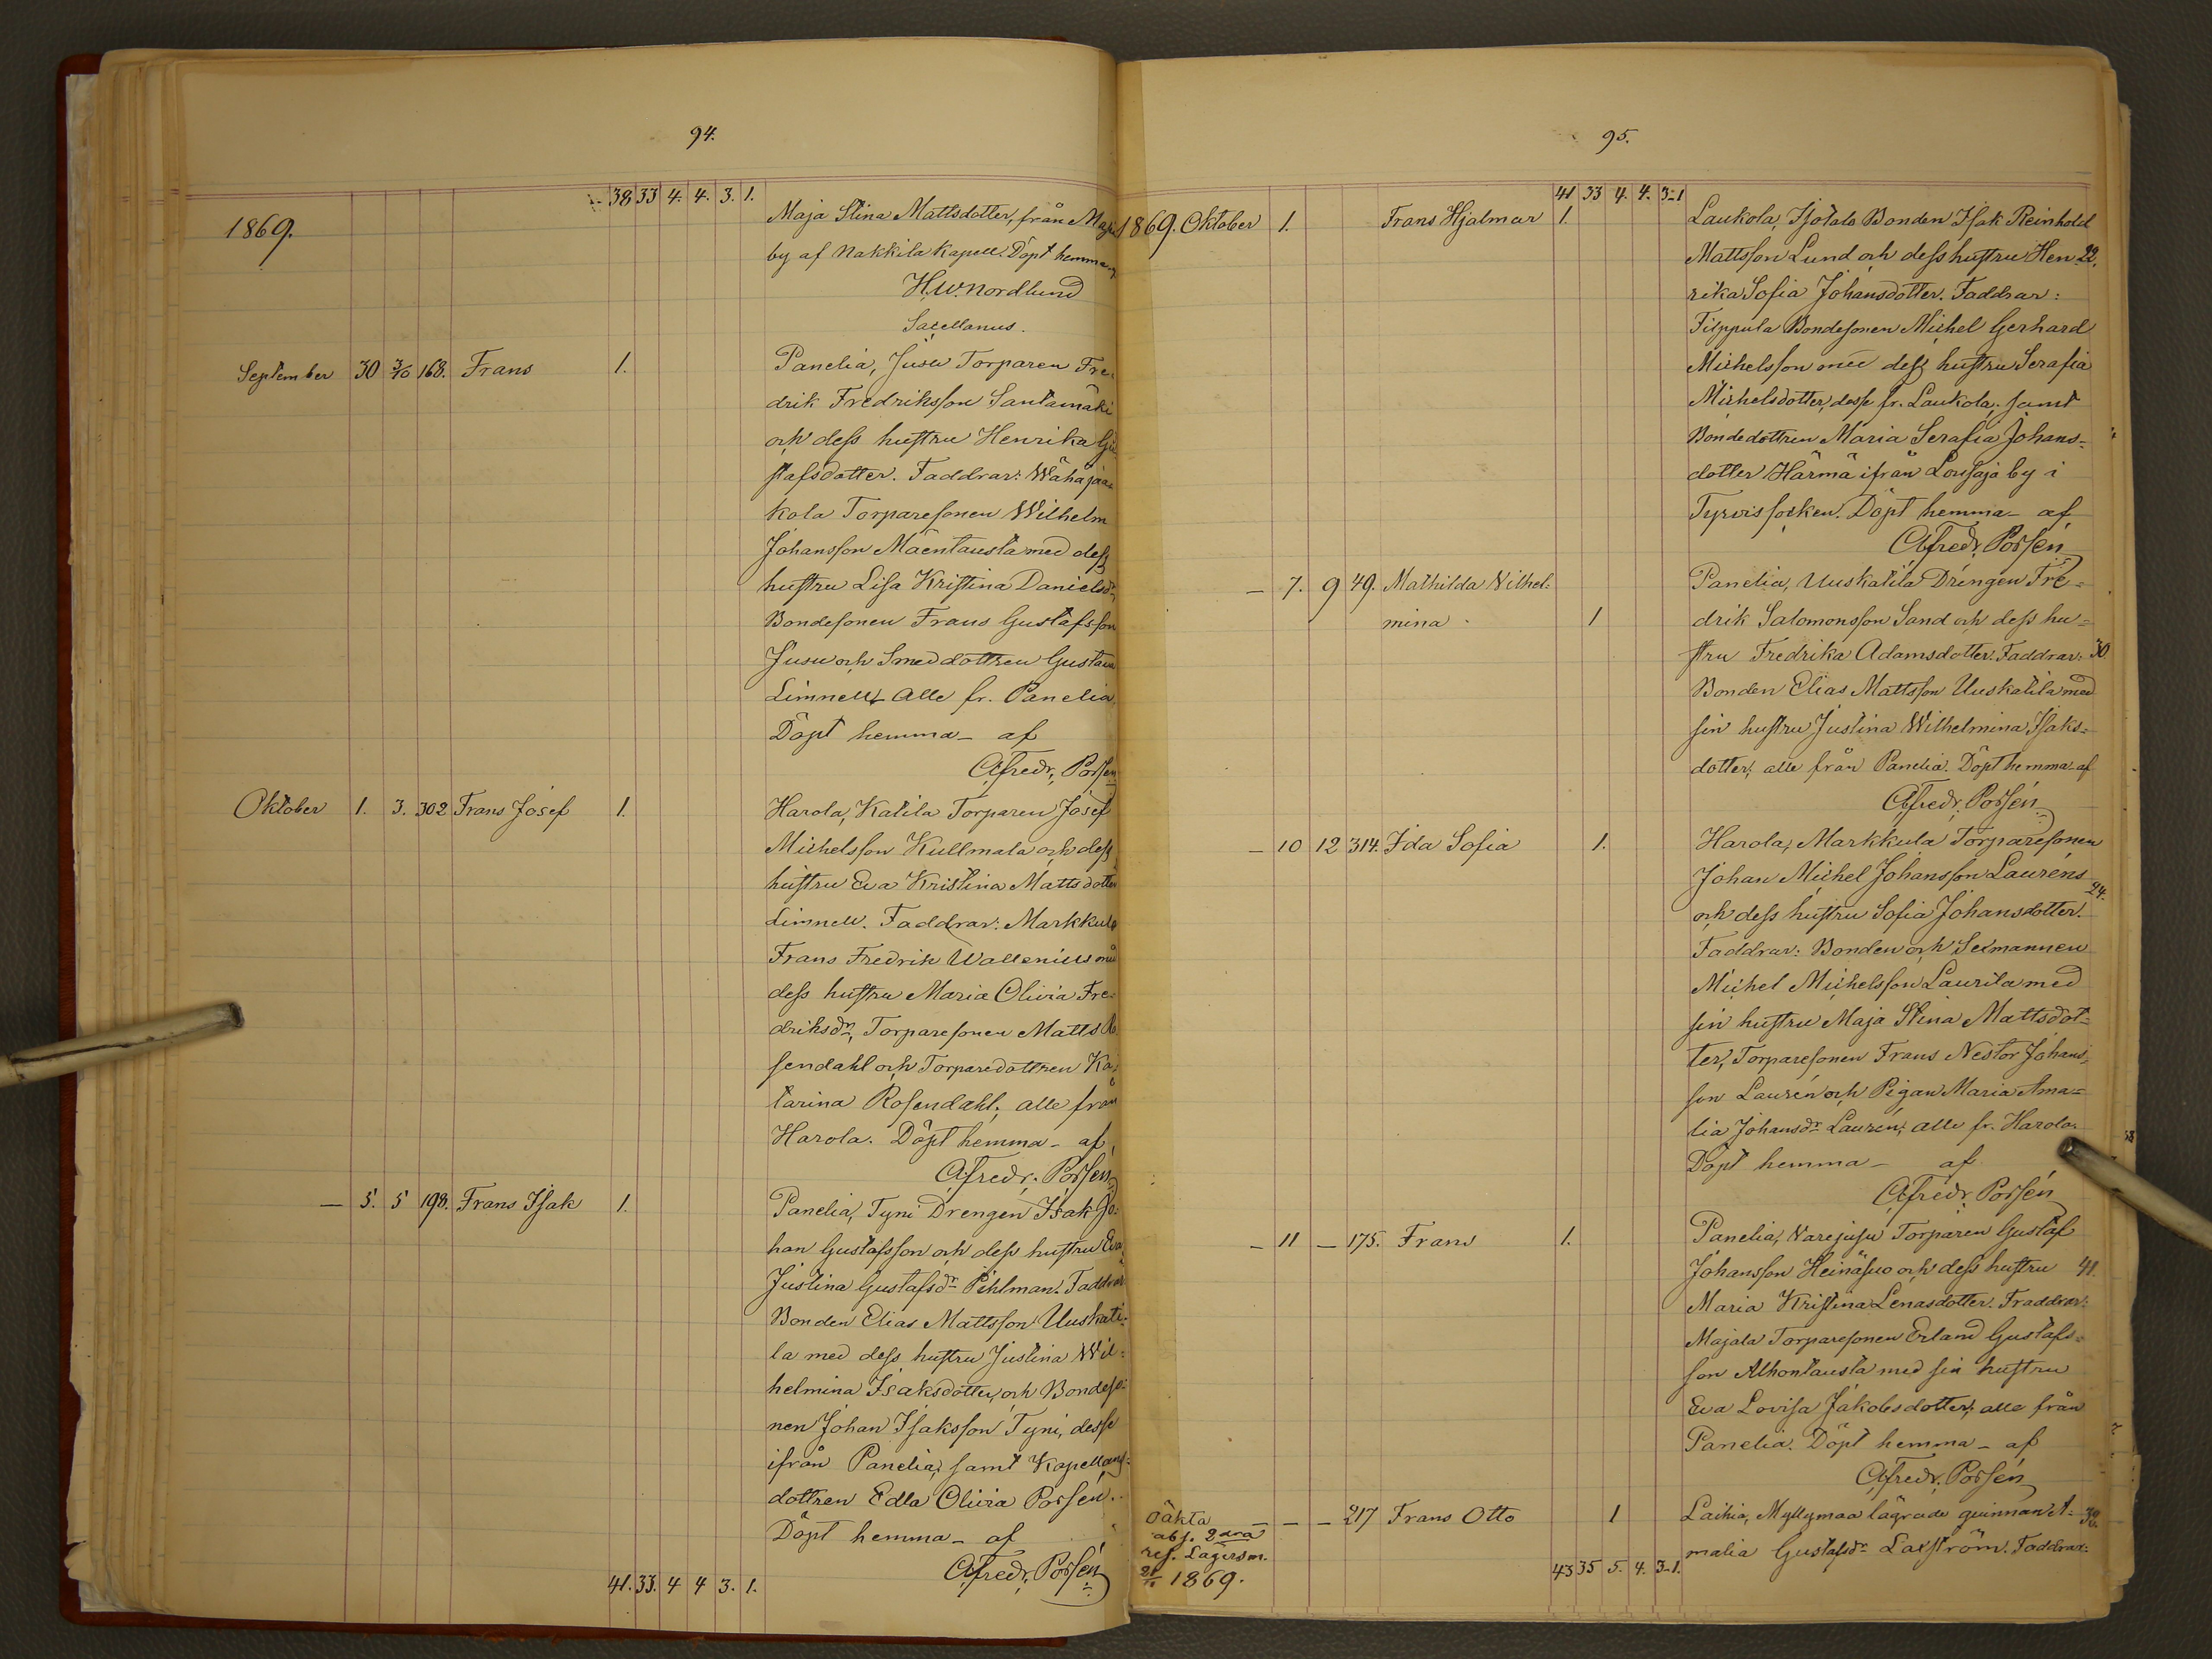 94.
38 33 4. 4. 3. 1.
1869.
Maja Stina Mattsdotter, från
by af Nakkila Kapell. Döpt hemma
H.W. Nordlund
Sacellanus.
September 30 3/10 168. Frans 1. Panelia, Juse Torparen Fre-
drik Fredriksson Santamäki
och dess hustru Henrika Gu
stafsdotter. Faddrar: Wähäjaa-
kola Torparesonen Wilhelm
Johansson Mäentausta med dess
hustru Lisa Kristina Danielsdr,
Bondesonen Frans Gustafsson
Jusu och Smeddottren Gustava
Limnell, alle fr. Panelia.
Döpt hemma – af
A. Fredr. Porsén
Oktober 1. 3. 302 Frans Josef 1. Harola, Katila Torparen Josef
Michelsson Kullmala och dess
hustru Eva Kristina Mattsdotter
Limnell. Faddrar: Markkula
Frans Fredrik Wallenius med
dess hustru Maria Olivia Fre-
driksdr, Torparesonen Matts Ro
sendahl och Torparedottren Ka-
tarina Rosendahl; alle från
Harola. Döpt hemma – af
A. Fredr. Porsén
— 5. 5 198. Frans Isak 1. Panelia, Tyni Drengen Isak Jo-
han Gustafsson och dess hustru Eva
Justina Gustafsdr Pihlman. Faddrar
Bonden Elias Mattsson Uuskati-
la med dess hustru Justina Wil-
helmina Isaksdotter, och Bondeso-
nen Johan Isaksson Tyni, desse
ifrån Panelia, samt Kapellans-
dottren Edla Olivia Porsén.
Döpt hemma – af
A. Fredr. Porsén
41. 33. 4 4 3. 1.
95.
41 33 4. 4. 3-1
1869. Oktober 1. Frans Hjalmar 1. Laukola, Isotalo Bonden Isak Reinhold
Mattsson Lund och dess hustru Hen- 22.
rika Sofia Johansdotter. Faddrar:
Filppula Bondesonen Michel Gerhard
Michelsson med dess hustru Serafia
Michelsdotter, desse fr. Laukola, samt
Bondedottren Maria Serafia Johans-
dotter Härmä ifrån Lousaja by i
Tyrvis socken. Döpt hemma – af
A. Fredr. Porsén
— 7. 9 49. Mathilda Vilhel- Panelia, Uuskatila Drengen Fre-
mina 1 drik Salomonsson Sand och dess hu-
stru Fredrika Adamsdotter. Faddrar: 30.
Bonden Elias Mattsson Uuskatila med
sin hustru Justina Wilhelmina Isaks-
dotter; alle från Panelia. Döpt hemma af
A. Fredr. Porsén
— 10 12 314. Ida Sofia 1. Harola, Markkula Torparesonen
Johan Michel Johansson Lauréns
24.
och dess hustru Sofia Johansdotter.
Faddrar: Bonden och Sexmannen
Michel Michelsson Laurila med
sin hustru Maja Stina Mattsdot-
ter, Torparesonen Frans Nestor Johans-
son Laurén och Pigan Maria Ama-
lia Johansdr Laurén; alle fr. Harola.
Döpt hemma – af
A. Fredr. Porsén
— 11 — 175. Frans 1. Panelia, Varejusu Torparen Gustaf
Johansson Heinäsuo och dess hustru 41.
Maria Kristina Lenasdotter. Fraddrar:
Majala Torparesonen Erland Gustafs-
son Alhontausta med sin hustru
Eva Lovisa Jakobsdotter; alle från
Panelia. Döpt hemma – af
A. Fredr. Porsén
Oäkta — — — 217 Frans Otto 1 Laihia, Myllymaa lägrade qvinnan A- 32.
abs. 2dra
malia Gustafsdr Laxström. Faddrar:
ref. Lägersm.
1869.
43 35 5. 4. 3-1.